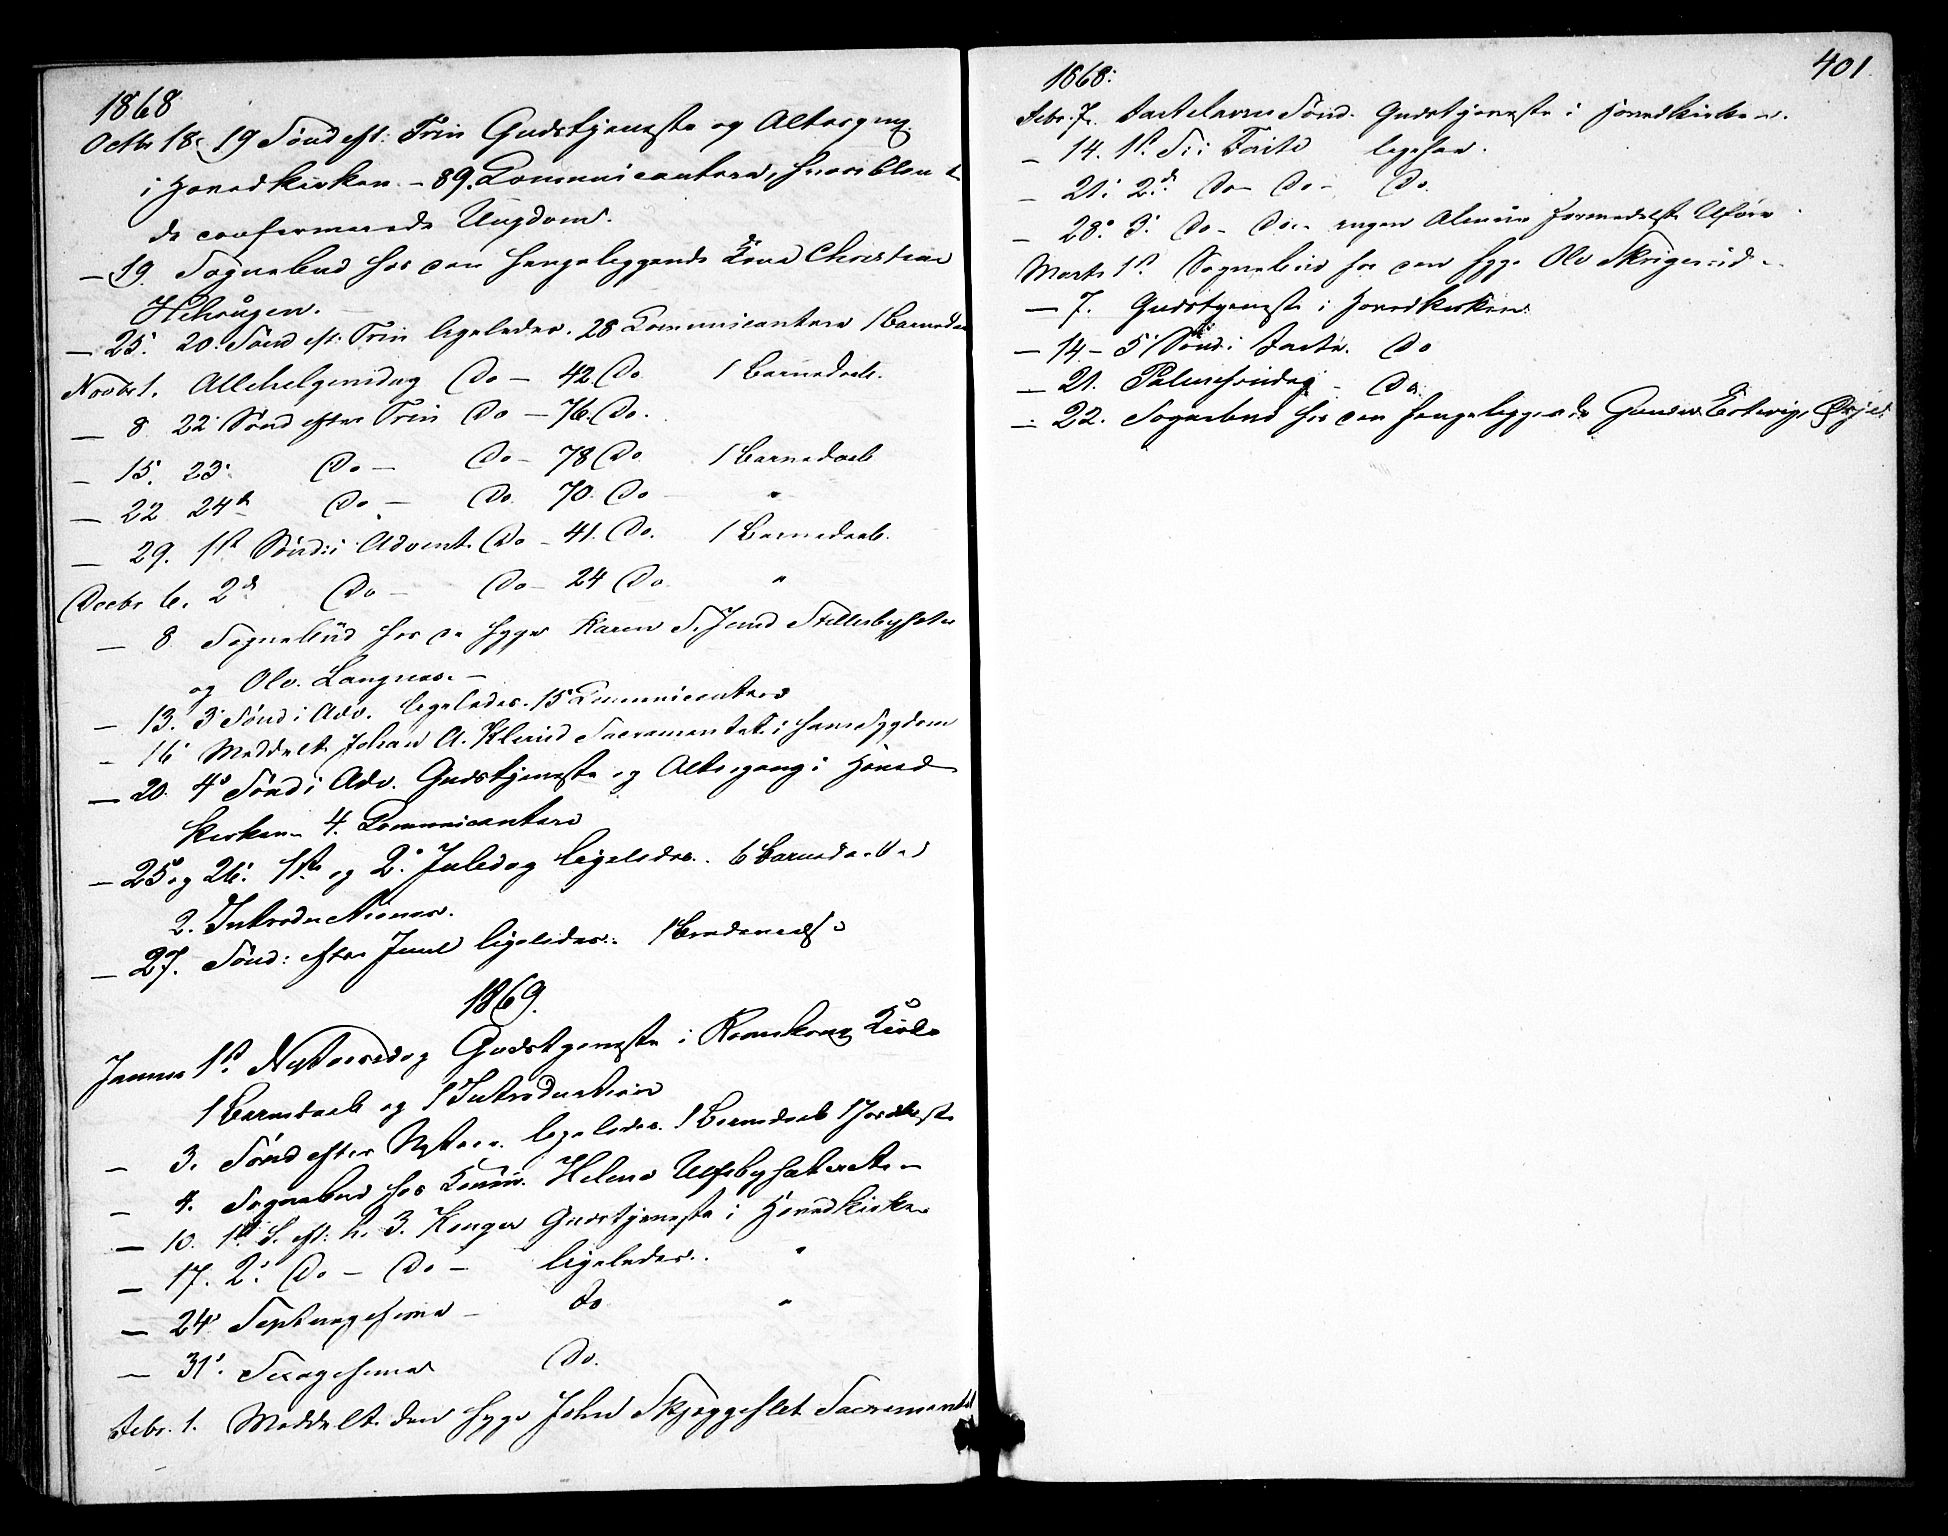 1868
Octbr 18. 19 Sønd eft: Trin Gudstjeneste og Altergang
i Hovedkirken. – 89. Communicantere, hvoriblandt
de confirmerede Ungdom.
– 19. Sognebud hos den sengeliggende Kone Christine
– 25. 20. Sønd eft: Trin ligeledes. 28 Communicantere 1 Barnedaab
Novbr 1. Allehelgensdag Do – 42. Do. 1 Barnedaab.
– 8. 22 Sønd efter Trin Do – 76. Do.
– 15. 23. Do – Do – 78 Do 1 Barnedaab
– 22 24de Do – Do. 70. Do "
– 29. 1ste Sønd: i Advent. Do – 41. Do. 1 Barnedaab.
Decbr 6. 2d Do – Do – 24 Do "
– 8. Sognebud hos de syge Karen S. Sætersbysæter
og Ole Langnæs. –
– 13. 3 Sønd i Adv. ligeledes. 15 Communicantere
– 16 Meddelt Johan A. Klund Sacramentet i hans Sygdom
– 20. 4 Sønd i Adv. Gudstjeneste og Altergang i Hoved
kirken – 4. Communicantere
– 25 og 26. 1ste og 2. Juledag ligeledes. 6 Barnedaab
2. Introductioner.
– 27. Sønd: efter Juul ligeledes.
1869.
Januar 1st. Nytaarsdag Gudstjeneste i Romskoug Kirke
1 Barnedaab og 1 Introduction
– 3. Sønd efter Nytaar. ligeledes. 1 Barnedaab 1 Jordfæst
– 4. Sognebud hos Helene Ulfsbysæteret –
– 10. 1st S. eft: h. 3. Konger Gudstjeneste i Hovedkirken
– 17. 2. Do – Do – ligeledes. "
– 24 Septuagesima – do "
– 31. Sexagesima Do.
Febr. 1. Meddelt den syge John Skjeggeslet Sacramentet
401.
1868:
Febr. 7. Fastelavns Sønd. Gudstjeneste i Hovedkirken.
– 14. 1st. S. i Faste ligesaa.
– 21. 2d. Do – Do – Do.
– 28. 3. Do – Do – ingen Almue formedelst Uføre
Marts 1st. Sognebud hos den syge Ole
– 7. Gudstjeneste i Hovedkirken.
– 14 – 5 Sønd: i Faste. Do
– 21. Palmesøndag – Do.
– 22. Sognebud hos den sengeliggende Gunder